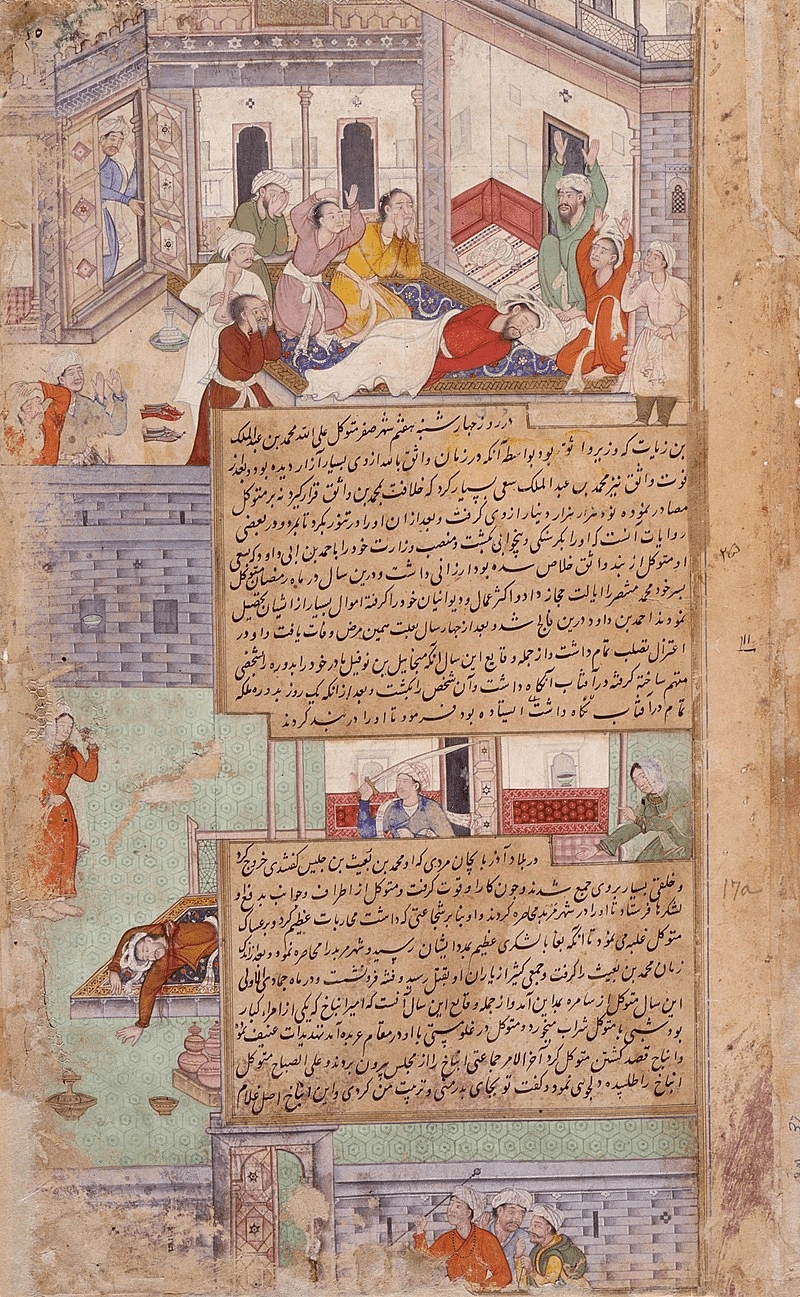 در روز چهار شنبه هفتم شهر صفر متوکل علی الله محمد بن عبد الملک
بن زیات که وزیر واثق بود بواسطه آنکه در زمان واثق با از وی بسیار آزار دیده بود و بعد از
فوت واثق نیز محمد بن عبد الملک سعی بسیار کرد که خلافت بمحمد بن واثق قرار گیرد نه بر متوکل
مصادر نموده نود هزار هزار دینار از وی گرفت و بعد از ان او را در تنور کرد تا بمرد و در بعضی
روایات آنست که او را بگرسنکی و بیخوابی بکشت و منصب وزارت خود را باحمد بن ابی داود که بسعی
او متوکل از بند واثق خلاص شده بود ارزانی داشت و درین سال در ماه رمضان متوکل
پسر خود محمد منتصر را ایالت حجاز داد و اکثر عمال و دیوانیان خود را گرفته اموال بسیار از ایشان تحصیل
نمود احمد بن داود درین فالج شد و بعد از چهار سال بعلت همین مرض وفات یافت و او در
اعتزال تصلب تمام داشت و از جمله وقایع این سال آنکه میخاییل بن توفیل مادر خود را بدوره شخصی
متهم ساخته گرفته در آفتاب نگاه داشت و آن شخص را بکشت و بعد از انکه یک روز بدوره ملکه
تمام در آفتاب نگاه داشت ایستاده بود فرمود تا او را در بند کردند
در بلاد آذربایجان مردی که او محمد بن بعیث بن جلیس گفتندی خروج کرد
و خلقی بسیار بروی جمع شدند و چون کار او قوت گرفت و متوکل از اطراف و جوانب بدفع او
لشکرها فرستاد تا او را در شهر مرند محاصره کردند و او بنا بر شجاعتی که داشت محاربات عظیم کرد و بر عساکر
متوکل غلبه می نمود تا آنکه بغا با لشکری عظیم بمدد ایشان رسید و شهر مرند را محاصره نمود و بعد از اندک
زمان محمد بن بعیث را گرفت و جمعی کثیر از یاران او بقتل رسید و فتنه فرو نشست و در ماه جمادی الاولی
این سال متوکل از سامره بمداین آمد و از جمله وقایع این سال آنست که امیر ایتاخ که یکی از امراء کبار
بود شبی با متوکل شراب میخورد و متوکل در غلو مستی با او در مقام عربده آمد تهدیدات عنیف نمود
و ایتاخ قصد کشتن متوکل کرد آخر الامر جماعتی ایتاخ را از مجلس بیرون بردند و علی الصباح متوکل
ایتاخ را طلبیده دلجوی نمود و گفت تو بجای پدر منی و تربیت من کردی و این ایتاخ اصل غلام
17a